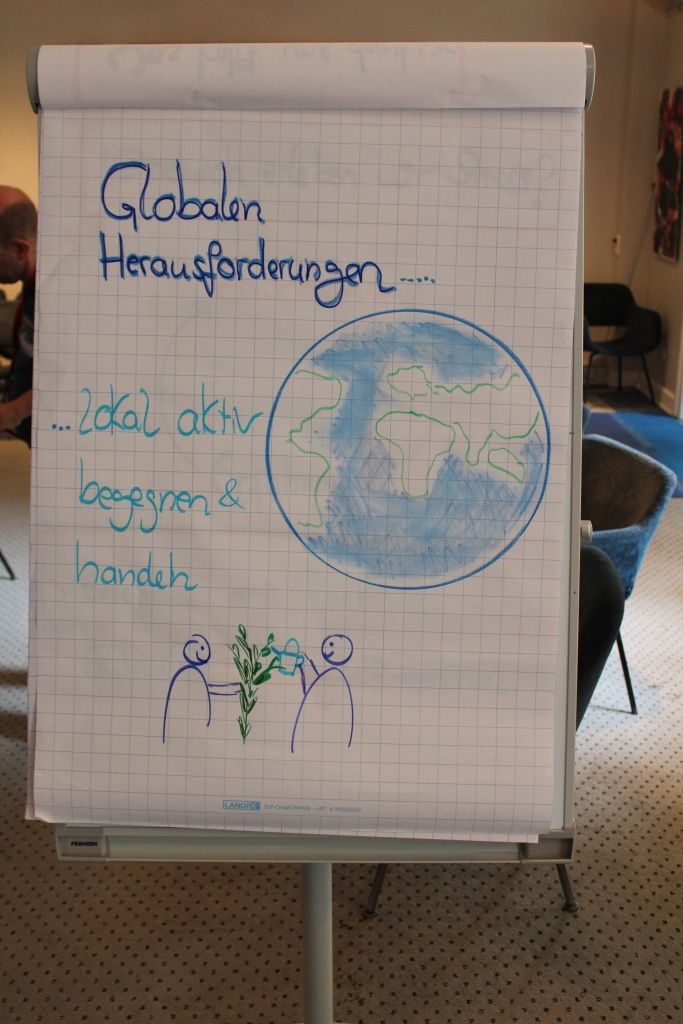 Globalen
Herausforderungen .....
... lokal aktiv
begegnen &
handeln
LANDRÉ FLIP-CHART-PAPIER - ART.
FRANKEN